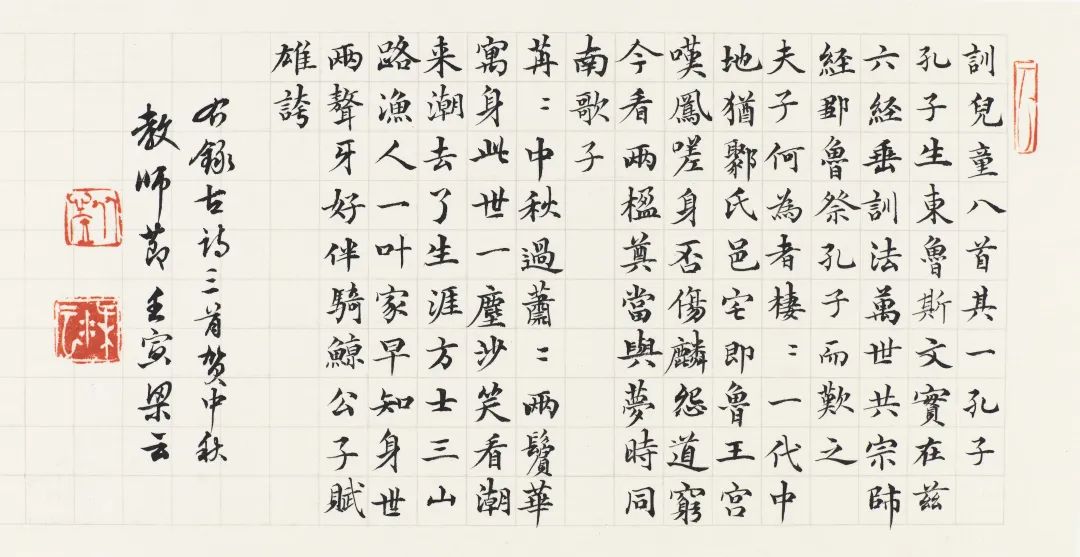 訓兒童八首其一孔子
孔子生東魯斯文實在茲
六經垂訓法萬世共宗師
經鄒魯祭孔子而歎之
夫子何為者棲〻一代中
地猶鄹氏邑宅即魯王宮
嘆鳳嗟身否傷麟怨道窮
今看兩楹奠當與夢時同
南歌子
苒〻中秋過蕭〻兩鬢華
寓身此世一塵沙笑看潮
来潮去了生涯方士三山
路漁人一叶家早知身世
兩聱牙好伴騎鯨公子賦
雄誇
右錄古詩三首賀中秋
教師節壬寅梁云